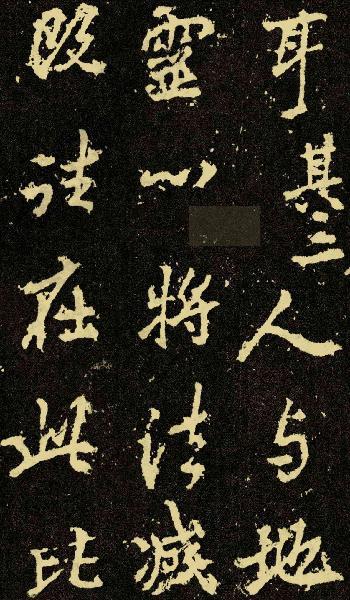 耳其三人与地
靈以将法减
既法在此比